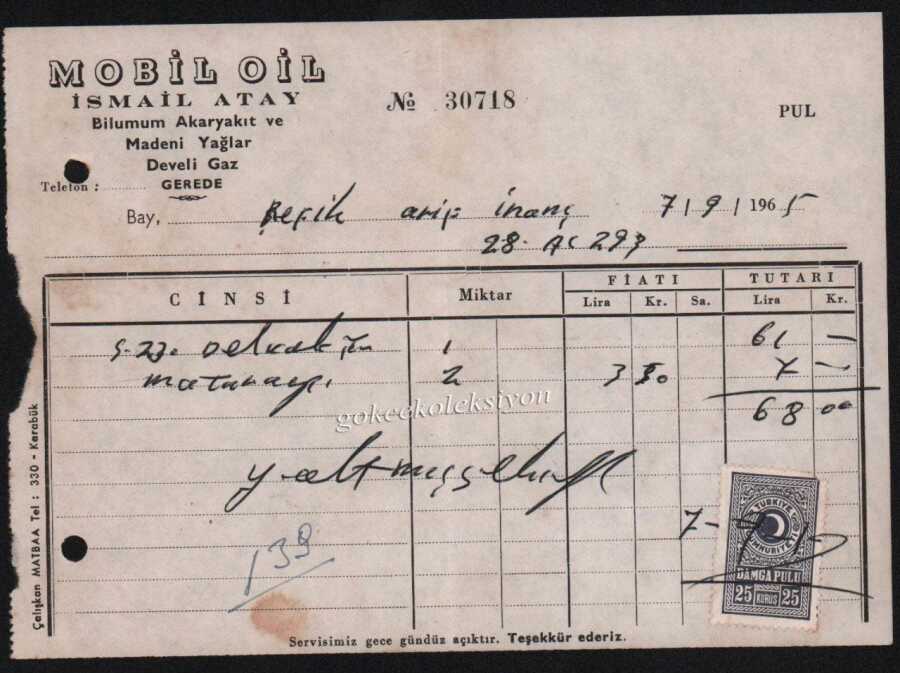 MOBİL OİL
İSMAİL ATAY
Bilumum Akaryakıt ve
Madeni Yağlar
Develi Gaz
GEREDE
Telefon :
№ 30718
PUL
Bay, arif inanç 7/9/1965
28. AC 293
CİNSİ Miktar FİATI TUTARI
Lira Kr. Sa. Lira Kr.
1 61 —
2 3 50 7 —
68 00
gokcekoleksiyon
7-9-
139
TÜRKİYE CUMHURİYETİ
DAMGA PULU
25 KURUŞ 25
Servisimiz gece gündüz açıktır. Teşekkür ederiz.
Çalışkan MATBAA Tel : 330 - Karabük